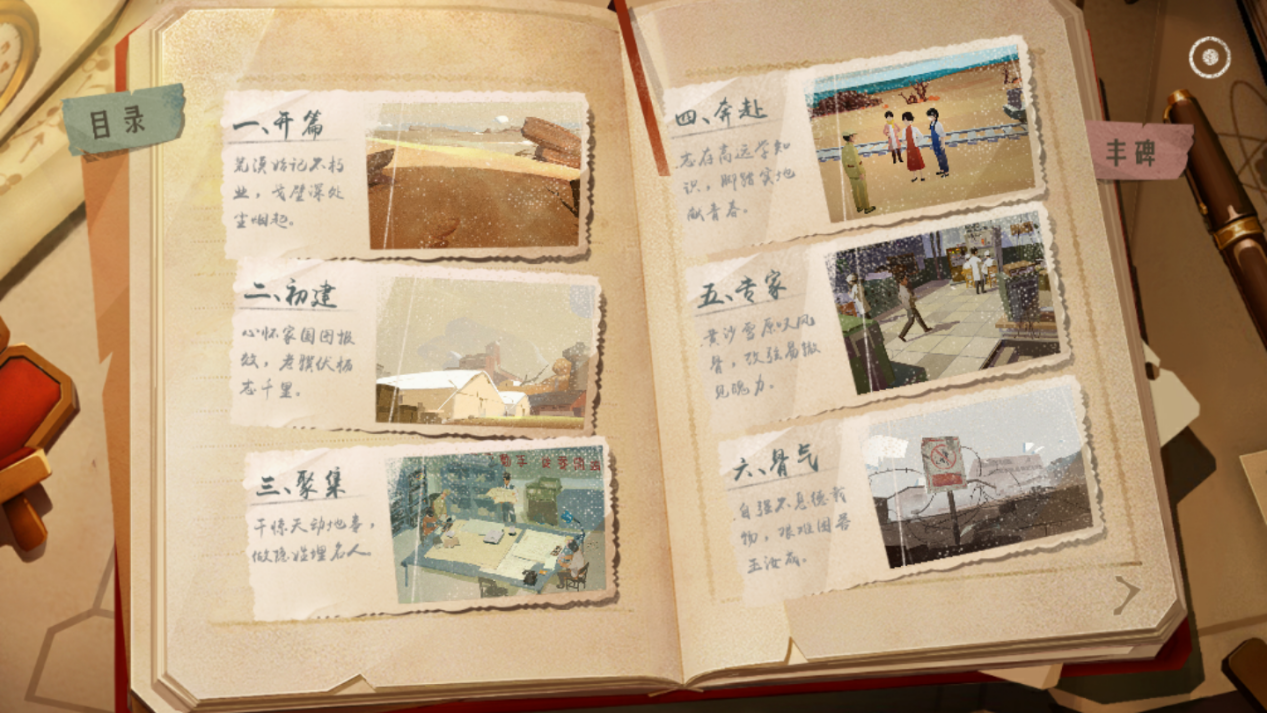 目录
一、开篇
荒漠始记不朽
业，戈壁深处
尘烟起。
二、初建
心怀家国图报
效，老骥伏枥
志千里。
三、聚集
干惊天动地事，
做隐姓埋名人
四、奔赴
志存高远学知
识，脚踏实地
献青春。
五、专家
黄沙雪原叹风
骨，改弦易辙
见魄力。
六、骨气
自强不息德载
物，艰难困苦
玉汝成。
丰碑